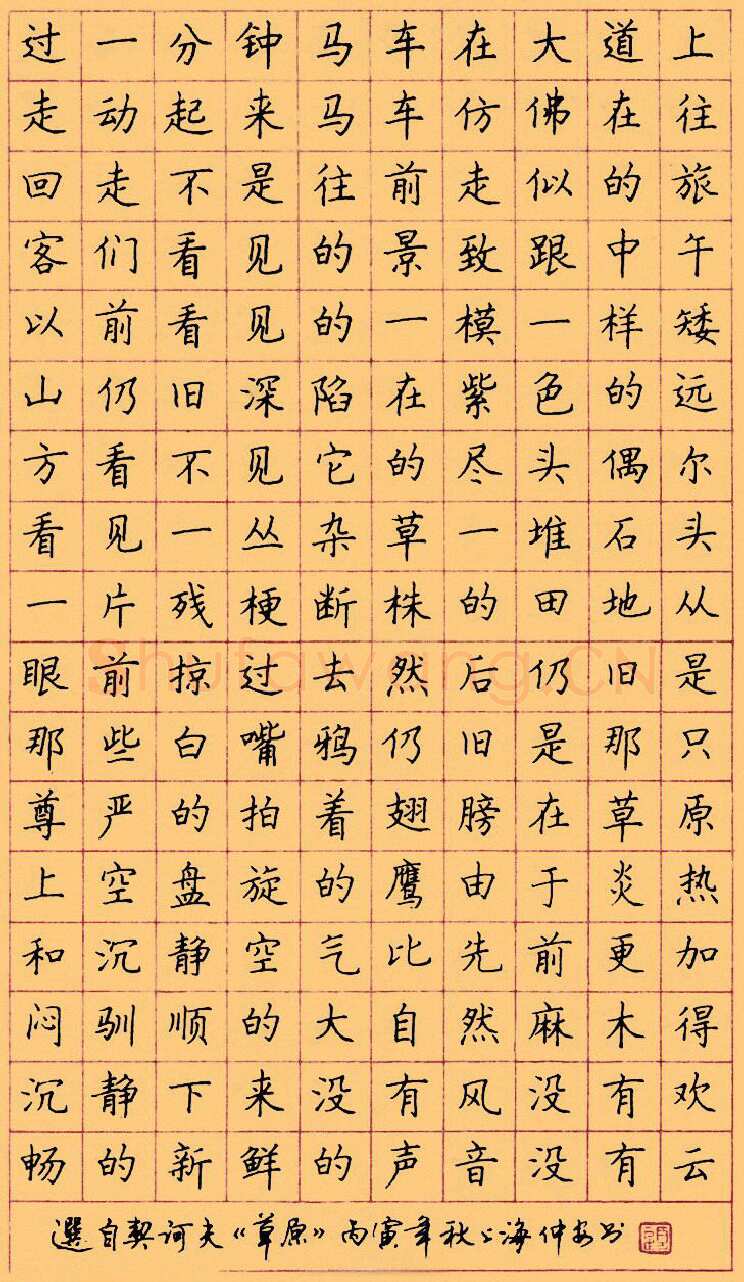 过一分钟马车在大道上
走动起来马车仿佛在往
回走不是往前走似的旅
客们看见的景致跟中午
以前看见的一模一样矮
山仍旧深陷在紫色的远
方看不见它的尽头偶尔
看见一丛杂草一堆石头
一片残梗断株的田地从
眼前掠过去然后仍旧是
那些白嘴鸦仍旧是那只
尊严的拍着翅膀在草原
上空盘旋的鹰由于炎热
和沉静空气比先前更加
闷驯顺的大自然麻木得
沉静下来没有风没有欢
畅的新鲜的声音没有云
選自契诃夫《草原》丙寅年秋上海仲
Shufawang.CN